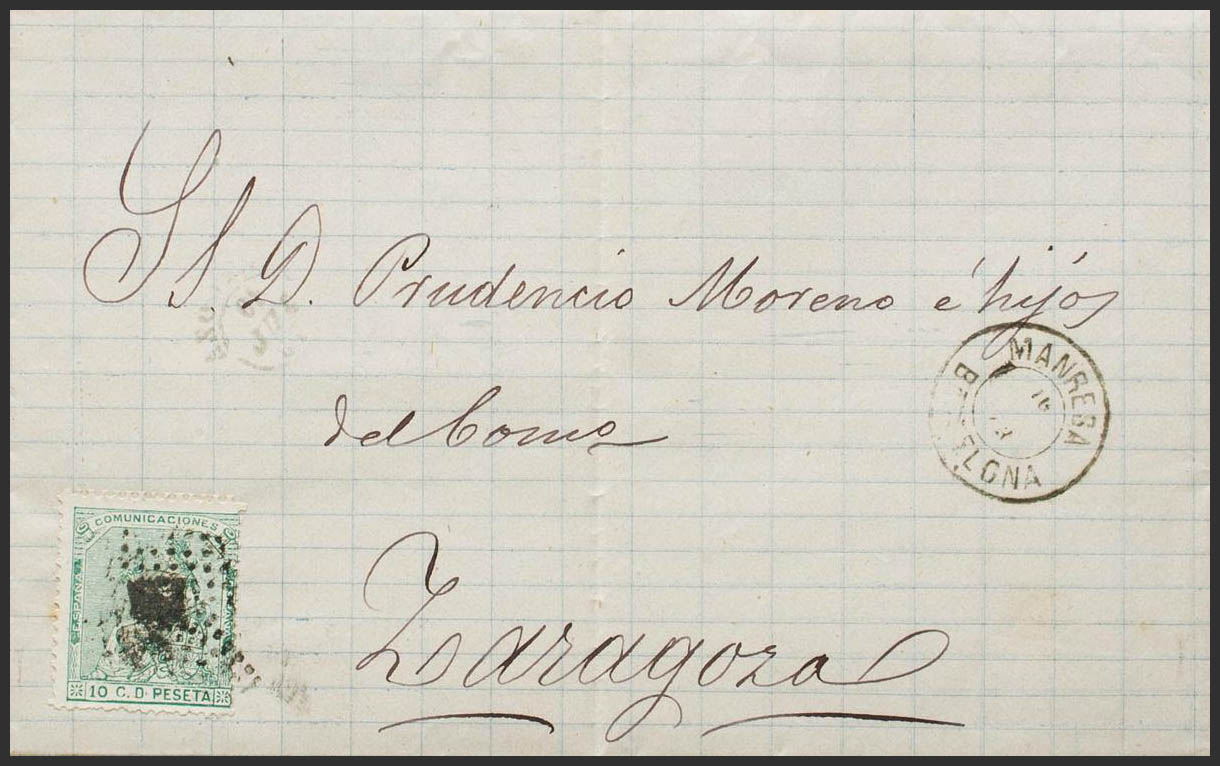 Ss. D. Prudencio Moreno é hijos
del Comº
Zaragoza
MANRESA
COMUNICACIONES
ESPAÑA
10 C. D. PESETA